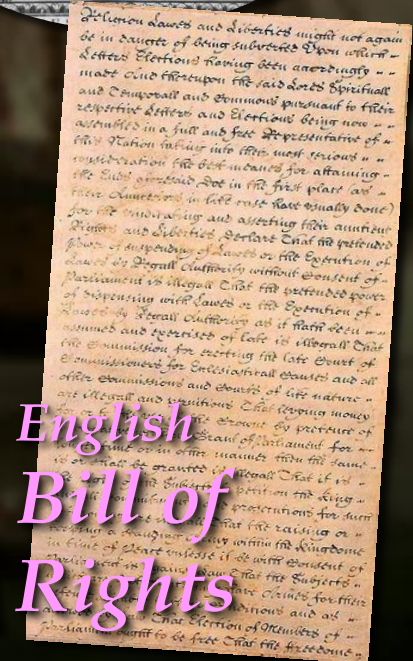 Religion Lawes and Liberties might not again
be in danger of being subverted Upon which
Letters Elections having been accordingly
made And thereupon the said Lords Spirituall
and Temporall and Commons pursuant to their
respective Letters and Elections being now
assembled in a full and free Representative of
this Nation taking into their most serious
consideration the best meanes for attaining
the Ends aforesaid Doe in the first place (as
their Auncestors in like case have usually done)
for the vindicating and asserting their auntient
Rights and Liberties, Declare That the pretended
Power of suspending of Lawes or the Execution of
Lawes by Regall Authority without Consent of
Parliament is illegall That the pretended power
of dispensing with Lawes or the Execution of
Lawes by Regall Authority as it hath been
assumed and exercised of late is illegall That
the Commission for erecting the late Court of
Commissioners for Ecclesiasticall Causes and all
other Commissions and Courts of like nature
are illegall and pernitious That levying money
for or to the Crowne by pretence of
Grant of Parliament for
time or in other manner then the same
is or shall be granted is illegall That it is
the Subjects petition the King
prosecutions for such
That the raising or
keeping a standing Army within the Kingdome
in time of Peace unlesse it be with Consent of
Parliament is against Law That the Subjects
Armes for their
Conditions and as
That Election of Members of
Parliament ought to be free That the freedome
English
Bill of
Rights